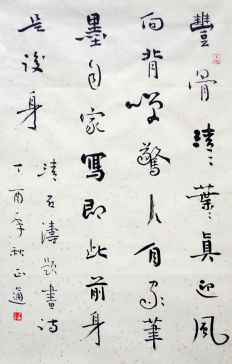 豐骨清〻葉〻真迎風
向背咲驚人自家筆
墨自家寫即此前身
是後身
清石濤題畫詩
丁酉年秋正通